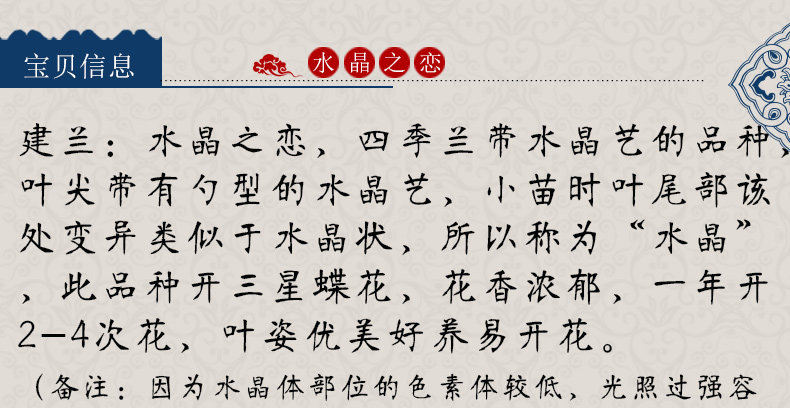 宝贝信息
水晶之恋
建兰：水晶之恋，四季兰带水晶艺的品种，
叶尖带有勺型的水晶艺，小苗时叶尾部该
处变异类似于水晶状，所以称为“水晶”
，此品种开三星蝶花，花香浓郁，一年开
2-4次花，叶姿优美好养易开花。
（备注：因为水晶体部位的色素体较低，光照过强容